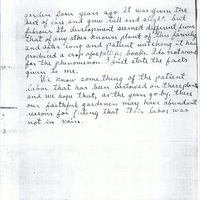 garden some years ago. It was given the
best of care, and grew tall and
Its development seemed different from
that of any other known plant of this family
and after long and patient watching it has
produced a crop of books. I do not account
for the phenomenon. I just state the facts
given to me.
We know something of the patient
labor that has been bestowed on these plants
and we hope that, as the years go by, these
our faithful gardeners may have abundant
reasons for feeling that their labor was
not in vain.